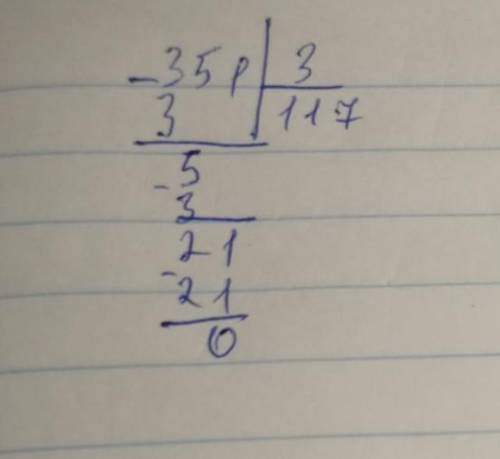 -351 3
3 117
-5
3
21
-21
0